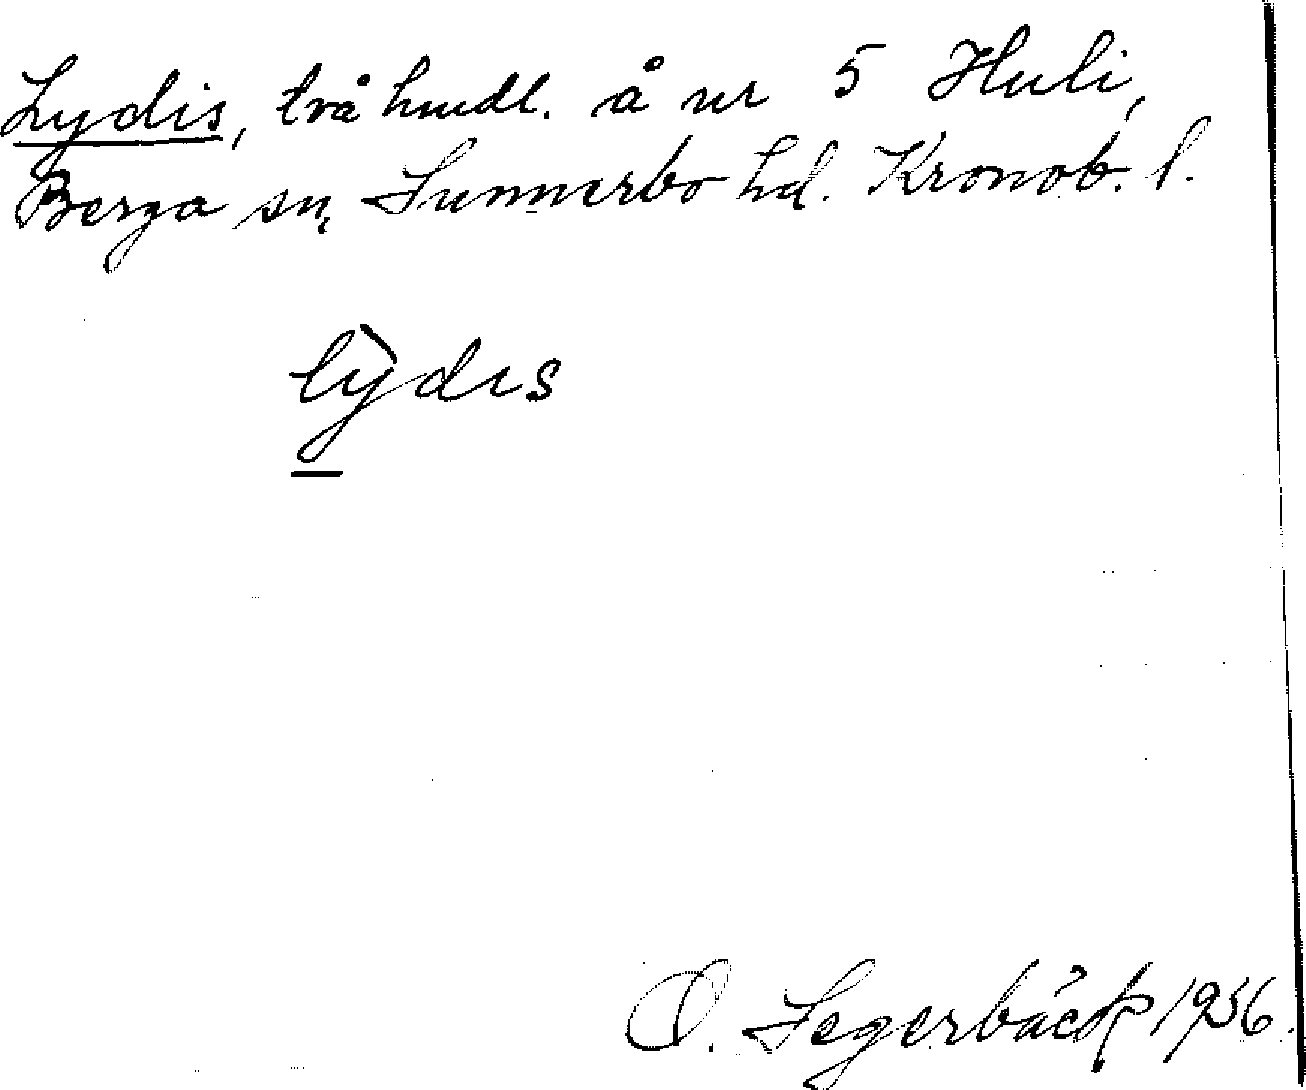 Lydis, två hmdl. å nr 5 Huli,
Berga sn, Sunnerbo hd. Kronob. l.
lỳdis
O. Segerbäck 1956